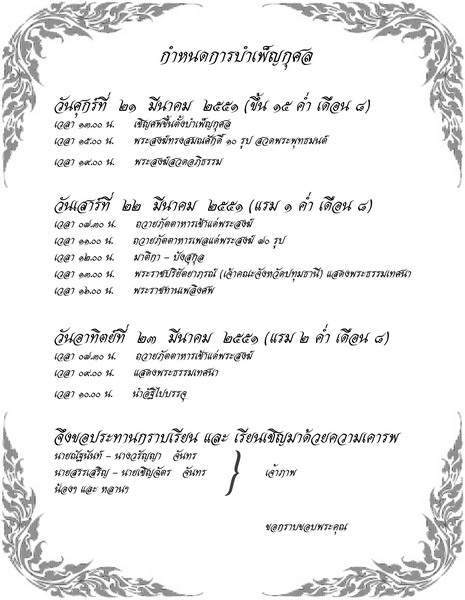 กำหนดการบำเพ็ญกุศล
วันศุกร์ที่ ๒๑ มีนาคม ๒๕๕๑ (ขึ้น ๑๕ ค่ำ เดือน ๘)
เวลา ๑๓.๐๐ น. เชิญศพขึ้นตั้งบำเพ็ญกุศล
เวลา ๑๕.๐๐ น. พระสงฆ์ทรงสมณศักดิ์ ๑๐ รูป สวดพระพุทธมนต์
เวลา ๑๙.๐๐ น. พระสงฆ์สวดอภิธรรม
วันเสาร์ที่ ๒๒ มีนาคม ๒๕๕๑ (แรม ๑ ค่ำ เดือน ๘)
เวลา ๐๗.๓๐ น. ถวายภัตตาหารเช้าแด่พระสงฆ์
เวลา ๑๑.๐๐ น. ถวายภัตตาหารเพลแด่พระสงฆ์ ๗๐ รูป
เวลา ๑๒.๐๐ น. มาติกา - บังสุกุล
เวลา ๑๓.๐๐ น. พระราชปริยัตยาภรณ์ (เจ้าคณะจังหวัดปทุมธานี) แสดงพระธรรมเทศนา
เวลา ๑๖.๐๐ น. พระราชทานเพลิงศพ
วันอาทิตย์ที่ ๒๓ มีนาคม ๒๕๕๑ (แรม ๒ ค่ำ เดือน ๘)
เวลา ๐๗.๓๐ น. ถวายภัตตาหารเช้าแด่พระสงฆ์
เวลา ๐๙.๐๐ น. แสดงพระธรรมเทศนา
เวลา ๑๐.๐๐ น. นำอัฐิไปบรรจุ
จึงขอประทานกราบเรียน และ เรียนเชิญมาด้วยความเคารพ
นายณัฐนันท์ – นางวรัญญา จันทร
นายสรรเสริญ – นายเชิญฉัตร จันทร เจ้าภาพ
น้องๆ และ หลานๆ
ขอกราบขอบพระคุณ